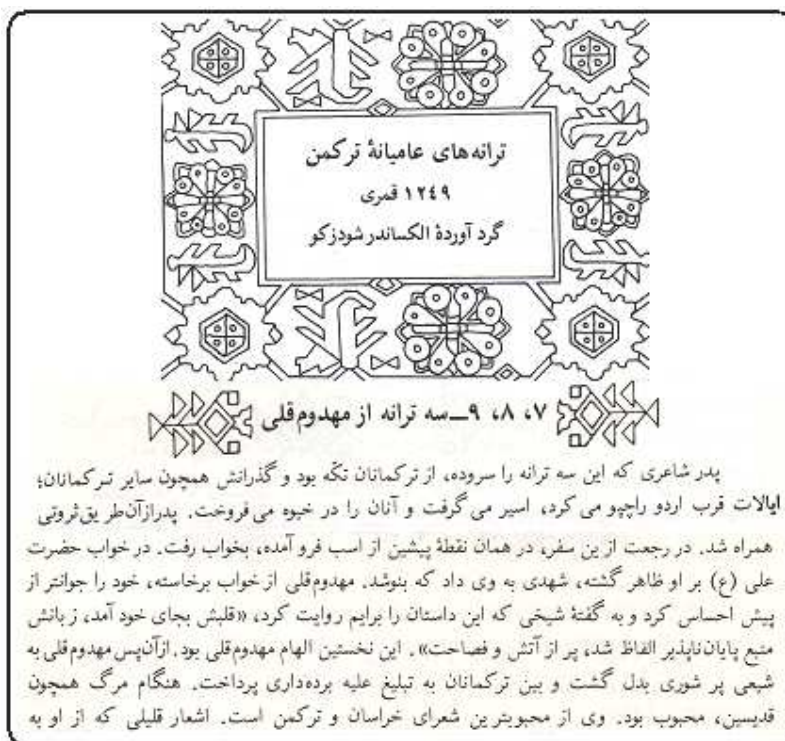 ترانه‌های عامیانهٔ ترکمن
١٢٤٩ قمری
گرد آوردهٔ الکساندر شودزکو
٧، ٨، ٩ــ سه ترانه از مهدوم‌قلی
پدر شاعری که این سه ترانه را سروده، از ترکمانان تکّه بود و گذرانش همچون سایر ترکمانان؛
ایالات قرب اردو راچپو می‌کرد، اسیر می‌گرفت و آنان را در خیوه می‌فروخت. پدرازآن‌طریق‌ثروتی
همراه شد. در رجعت ازین سفر، در همان نقطهٔ پیشین از اسب فرو آمده، بخواب رفت. در خواب حضرت
علی (ع) بر او ظاهر گشته، شهدی به وی داد که بنوشد. مهدوم‌قلی از خواب برخاسته، خود را جوانتر از
پیش احساس کرد و به گفتهٔ شیخی که این داستان را برایم روایت کرد، «قلبش بجای خود آمد، زبانش
منبع پایان‌ناپذیر الفاظ شد، پر از آتش و فصاحت». این نخستین الهام مهدوم‌قلی بود. ازآن‌پس مهدوم‌قلی به
شیعی پر شوری بدل گشت و بین ترکمانان به تبلیغ علیه برده‌داری پرداخت. هنگام مرگ همچون
قدیسین، محبوب بود. وی از محبوبترین شعرای خراسان و ترکمن است. اشعار قلیلی که از او به